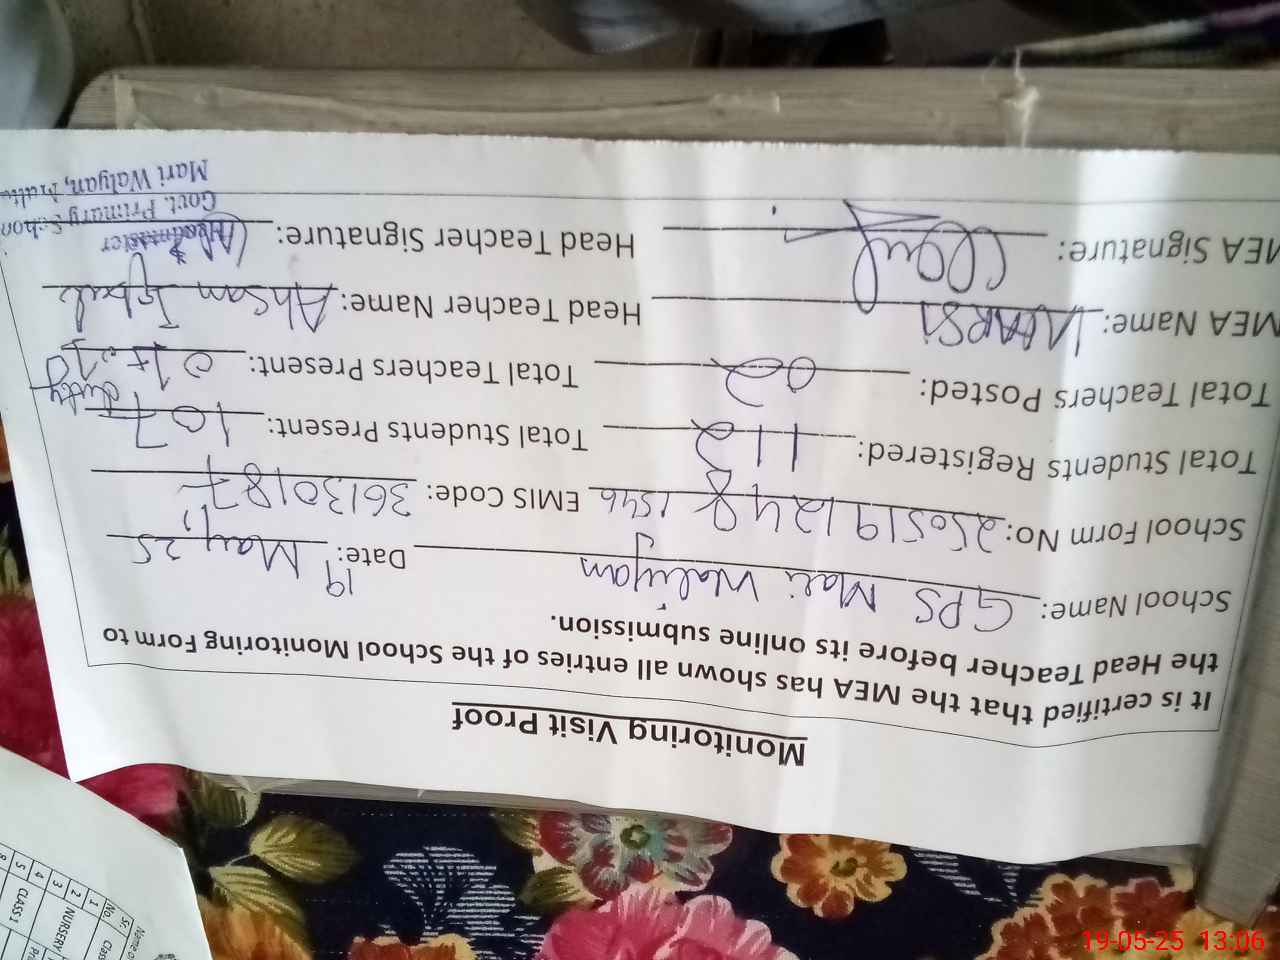 Monitoring Visit Proof
It is certified that the MEA has shown all entries of the School Monitoring Form to
the Head Teacher before its online submission.
School Name: GPS Mari Waliyan Date: 19 May, 25
School Form No: 2505191248 1546 EMIS Code: 36130187
Total Students Registered: 112 Total Students Present: 107
Total Teachers Posted: 02 Total Teachers Present: 01+01 duty
MEA Name: Head Teacher Name: Ahsan Iqbal
MEA Signature: Head Teacher Signature:
Headmaster
Govt. Primary School
Mari Walyan,
Sr.
No.
Class
1 NURSERY
2
3
4 CLASS 1
5
8
Name of
19-05-25 13:06